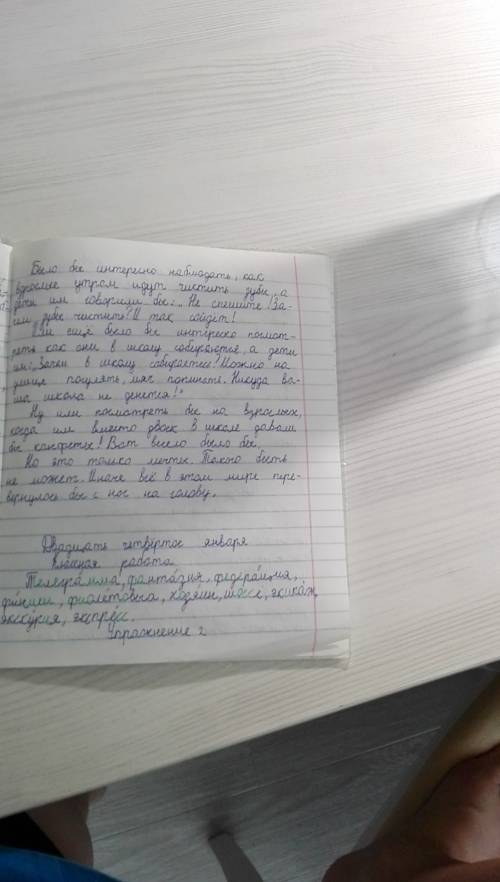 Было бы интересно наблюдать, как
взрослые утром идут чистить зубы, а
дети им говорили бы: „Не спешите! За-
чем зубы чистить? И так сойдёт!
И ещё было бы интересно посмот-
реть как они в школу собираются, а дети
им: Зачем в школу собираетесь? Можно на
улице погулять, мяч попинать. Никуда ва-
ша школа не денется!"
Ну или посмотреть бы на взрослых,
когда им вместо двоек в школе давали
бы конфеты! Вот весело было бы.
Но это только мечты. Такого быть
не может. Иначе всё в этом мире пере-
вернулось бы с ног на голову.
Двадцать четвёртое января
Классная работа
Телеграмма, фантазия, федерация,
фиолетовый, хозяин, шоссе, экипаж,
экскурсия, экспресс.
Упражнение 2